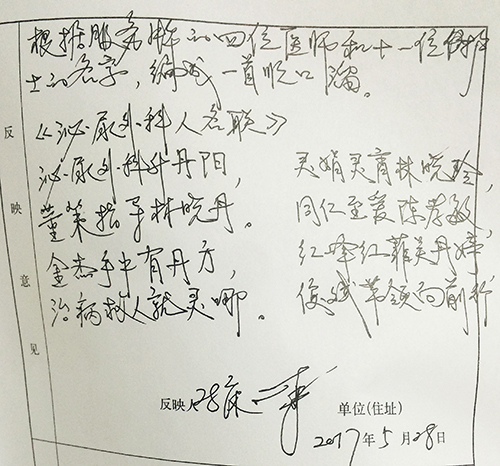 根据服务我的四位医师和十一位护
士的名字，编成一首顺口溜。
反映意见
《泌尿外科人名联》
泌尿外科升丹阳，
灵娟灵育林晓玲，
董策指导林晓丹。
同仁至爱陈孝敏，
金杰手中有丹方，
红峰红菲吴丹婷
治病救人就灵哪。
俊斌带领向前行
反映人 28床
单位(住址)
2017年5月28日